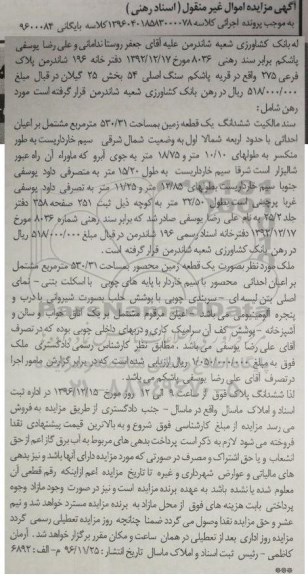 آگهی مزایده اموال غیر منقول (اسناد رهنی)
به موجب پرونده اجرائی کلاسه ۱۳۹۶۰۴۰۱۸۵۸۳۰۰۰۰۷۸ کلاسه بایگانی ۹۶۰۰۰۸۴
له بانک کشاورزی شعبه شاندرمن علیه آقای جعفر روستا ندامانی و علی رضا یوسفی
پاشکم برابر سند رهنی ۸۰۳۶ مورخ ۱۳۹۲/۱۲/۱۷ دفترخانه ۱۹۶ شاندرمن پلاک
فرعی ۲۷۵ واقع در قریه پاشکم سنگ اصلی ۵۴ بخش ۲۵ گیلان در قبال مبلغ
۵۱۸/۰۰۰/۰۰۰ ریال در رهن بانک کشاورزی شعبه شاندرمن قرار گرفته است مورد
رهن شامل:
سند مالکیت ششدانگ یک قطعه زمین بمساحت ۵۳۰/۳۱ مترمربع مشتمل بر اعیان
احداثی با حدود اربعه شمالا اول به وضعیت شمال شرقی سیم خارداریست به طور
منکسر به طولهای ۱۰/۱۰ متر و ۱۸/۷۵ متر به جوی آبرو که ماوراء آن راه عبور
شالیزار است شرقا سیم خارداریست به طول ۱۵/۲۰ متر به متصرفی داود یوسفی
جنوبا سیم خارداریست بطولهای ۱۳/۸۵ متر و ۱۱/۲۵ متر به تصرفی داود یوسفی
غربا پرچمی است بطول ۲۲/۵۰ متر به کوچه ذیل ثبت ۲۵۱ صفحه ۲۵۸ دفتر
جلد ۲۵/۲ به نام علی رضا یوسفی صادر شد که برابر سند رهنی شماره ۸۰۳۶ مورخ
۱۳۹۲/۱۲/۱۷ دفترخانه اسناد رسمی ۱۹۶ شاندرمن در قبال مبلغ ۵۱۸/۰۰۰/۰۰۰ ریال
در رهن بانک کشاورزی شعبه شاندرمن قرار گرفته است.
ملک مورد نظر بصورت یک قطعه زمین محصور بمساحت ۵۳۰/۳۱ مترمربع مشتمل
بر اعیان احداثی محصور با سیم خاردار با پایه های چوبی با اسکلت بتنی - نمای
اصلی بتن لیسه ای - سربندی چوبی با پوشش حلب بصورت شیروانی با درب و
پنجره آلومینیومی می باشد. اعیان مرقوم مشتمل بر یک اتاق خواب و سالن و
آشپزخانه - پوشش کف آن سرامیک کاری و دربهای داخلی چوبی بوده که در تصرف
آقای علی رضا یوسفی می باشد. مطابق نظر کارشناس رسمی دادگستری ملک
فوق به مبلغ ریال ارزیابی شده است که در برابر گزارش مامور اجرا
در تصرف آقای علی رضا یوسفی پاشکم می باشد.
لذا ششدانگ پلاک فوق از ساعت ۹ الی ۱۲ روز مورخ ۱۳۹۶/۱۲/۱۵ در اداره ثبت
اسناد و املاک ماسال واقع در ماسال - جنب دادگستری از طریق مزایده به فروش
می رسد مزایده از مبلغ کارشناسی فوق شروع و به بالاترین قیمت پیشنهادی نقدا
فروخته می شود لازم به ذکر است پرداخت بدهی های مربوط به آب برق گاز اعم از حق
انشعاب و یا حق اشتراک و مصرف در صورتی که مورد مزایده دارای آنها باشد و نیز بدهی
های مالیاتی و عوارض شهرداری و غیره تا تاریخ مزایده اعم ازاینکه رقم قطعی آن
معلوم شده یا نشده باشد به عهده برنده مزایده است و نیز در صورت وجود مازاد وجوه
پرداختی بابت هزینه های فوق از محل مازاد به برنده مزایده مسترد خواهد شد و نیم
عشر و حق مزایده نقدا وصول می گردد ضمنا چنانچه روز مزایده تعطیلی رسمی گردد
مزایده روز اداری بعد از تعطیلی در همان ساعت و مکان مقرر برگزار خواهد شد. آرمان
کاظمی - رئیس ثبت اسناد و املاک ماسال تاریخ انتشار: ۹۶/۱۱/۲۵ م-الف: ۶۸۹۲